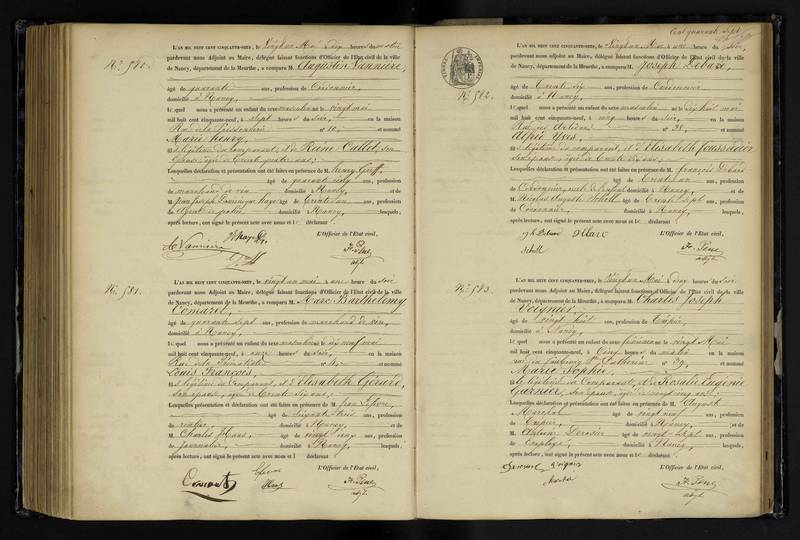 N° 580.
L'AN MIL HUIT CENT CINQUANTE-NEUF, le Vingt un Mai, Dix heures du matin
pardevant nous Adjoint au Maire, délégué faisant fonctions d'Officier de l'Etat civil de la ville
de Nancy, département de la Meurthe, a comparu M. Augustin Vannière,
âgé de quarante ans, profession de Cordonnier,
domicilié à Nancy,
lequel nous a présenté un enfant du sexe masculin né le vingt mai
mil huit cent cinquante-neuf, à sept heures du soir, en la maison
Rue de la Poissonnerie n° 10, et nommé
Marie Henry,
fils légitime du comparant, et d'Reine Callet, son
épouse, âgée de trente quatre ans;
Lesquelles déclaration et présentation ont été faites en présence de M. Henry Greff,
âgé de quarante cinq ans, profession
de marchand de vin domicilié à Nancy, et de
M. Jean Joseph Dominique Haye âgé de trente un ans, profession
de Agent de police domicilié à Nancy, lesquels,
après lecture, ont signé le présent acte avec nous et le déclarant
L'Officier de l'Etat civil,
Vannière
Greff
adjt
N° 581.
L'AN MIL HUIT CENT CINQUANTE-NEUF, le vingt un mai à une heure du soir
pardevant nous Adjoint au Maire, délégué faisant fonctions d'Officier de l'Etat civil de la ville
de Nancy, département de la Meurthe, a comparu M. Marc Barthélemy
Comaret,
âgé de quarante sept ans, profession de marchand de vin,
domicilié à Nancy,
lequel nous a présenté un enfant du sexe masculin né le dix neuf mai
mil huit cent cinquante-neuf, à onze heures du soir, en la maison
Rue de la Primatiale n° 4, et nommé
Louis François,
fils légitime du comparant, et d'Elisabeth Gérard,
son épouse, âgée de trente six ans;
Lesquelles déclaration et présentation ont été faites en présence de M. Jean Lefèvre,
âgé de soixante trois ans, profession
de rentier, domicilié à Nancy, et de
M. Charles Haas, âgé de vingt cinq ans, profession
de journalier, domicilié à Nancy, lesquels,
après lecture, ont signé le présent acte avec nous et le déclarant
L'Officier de l'Etat civil,
adjt
Cent quarante sept
N° 582.
L'AN MIL HUIT CENT CINQUANTE-NEUF, le Vingt un Mai à une heure du Soir,
pardevant nous Adjoint au Maire, délégué faisant fonctions d'Officier de l'Etat civil de la ville
de Nancy, département de la Meurthe, a comparu M. Joseph
âgé de Trente six ans, profession de Cordonnier
domicilié à Nancy,
lequel nous a présenté un enfant du sexe masculin né le dix huit mai
mil huit cent cinquante-neuf, à cinq heures du Soir, en la maison
Rue des Artisans n° 38, et nommé
fils légitime du comparant, et d'Elisabeth
son épouse, âgée de Trente six ans;
Lesquelles déclaration et présentation ont été faites en présence de M. François
âgé de Trente un ans, profession
de Cordonnier, domicilié à Nancy, et de
M. Nicolas Auguste Scholl âgé de Trente sept ans, profession
de Cordonnier, domicilié à Nancy, lesquels,
après lecture, ont signé le présent acte avec nous et le déclarant
L'Officier de l'Etat civil,
Scholl
adjt
N° 583
L'AN MIL HUIT CENT CINQUANTE-NEUF, le Vingt un Mai, Deux heures du Soir
pardevant nous Adjoint au Maire, délégué faisant fonctions d'Officier de l'Etat civil de la ville
de Nancy, département de la Meurthe, a comparu M. Charles Joseph
Voignier
âgé de vingt huit ans, profession de Tapissier,
domicilié à Nancy,
lequel nous a présenté un enfant du sexe féminin né le vingt Mai
mil huit cent cinquante-neuf, à Cinq heures du matin en la maison
rue du faubourg Ste Catherine n° 39, et nommé
Marie Sophie,
fille légitime du Comparant, et de Rosalie Eugénie
Garnier, son épouse, âgée de vingt cinq ans;
Lesquelles déclaration et présentation ont été faites en présence de M. Auguste
Marchal âgé de vingt neuf ans, profession
de Tapissier, domicilié à Nancy, et de
M. âgé de vingt sept ans, profession
de Employé, domicilié à Nancy, lesquels,
après lecture, ont signé le présent acte avec nous et le déclarant
L'Officier de l'Etat civil,
Voignier
adjt